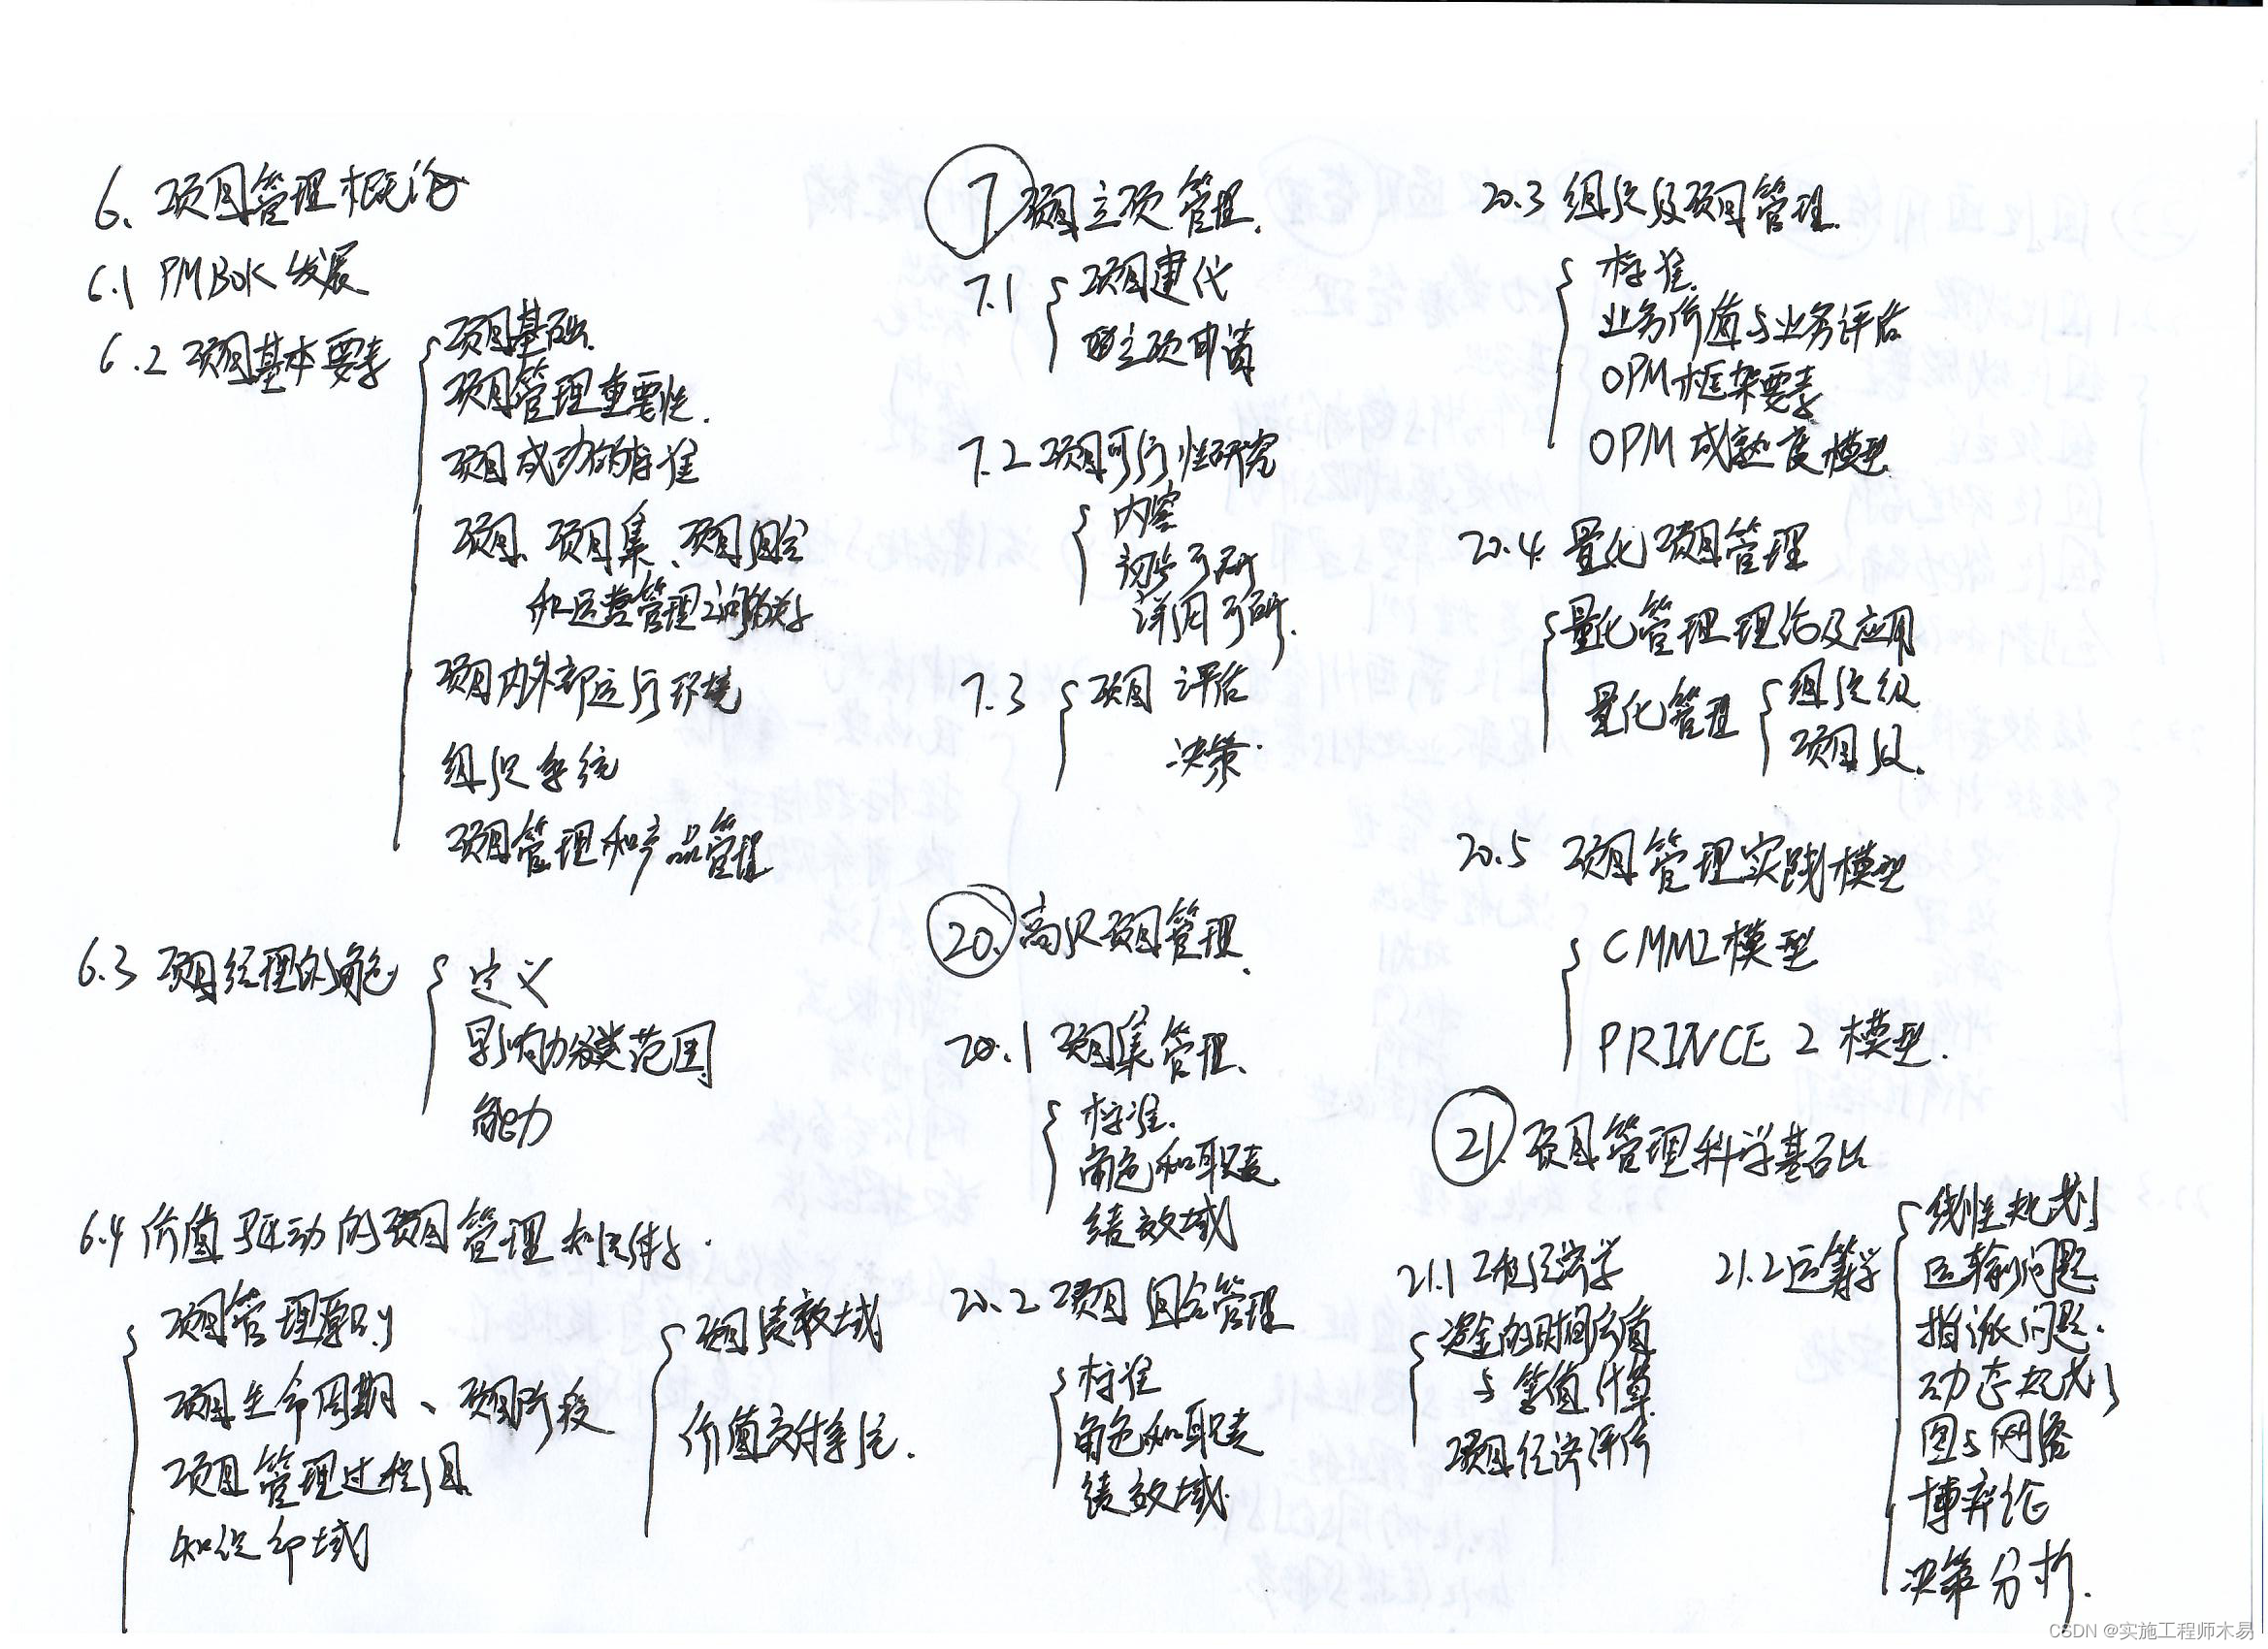 6. 项目管理概论
6.1 PMBOK发展
6.2 项目基本要素
项目基础
项目管理重要性.
项目成功的标准
项目、项目集、项目组合
和运营管理之间的关系
项目内外部运行环境
组织系统
项目管理和产品管理
6.3 项目经理的角色
定义
影响力范围
能力
6.4 价值驱动的项目管理知识体系.
项目管理原则
项目生命周期、项目阶段
项目管理过程组
知识领域
项目绩效域
价值交付系统.
7 项目立项管理.
7.1
项目建议
立项申请
7.2 项目可行性研究
内容
初步可研
详细可研.
7.3
项目评估
决策.
20. 高级项目管理.
20.1 项目集管理.
标准.
角色和职责
绩效域
20.2 项目组合管理
标准
角色和职责
绩效域.
20.3 组织级项目管理.
标准.
业务价值与业务评估
OPM框架要素
OPM成熟度模型
20.4 量化项目管理
量化管理理论及应用
量化管理
组织级
项目级.
20.5 项目管理实践模型
CMMI模型
PRINCE 2 模型.
21. 项目管理科学基础
21.1 工程经济学
资金的时间价值
与等值计算.
项目经济评价
21.2 运筹学
线性规划
运输问题.
指派问题.
动态规划
图与网络
博弈论
决策分析.
CSDN @实施工程师木易